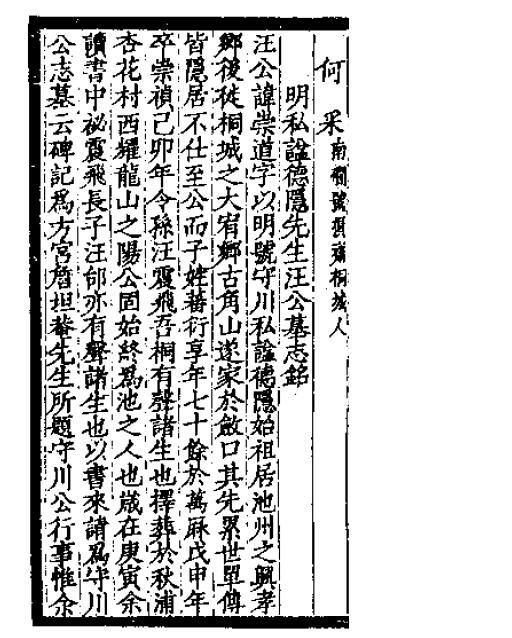 何采南澗號省齋桐城人
明私諡德隱先生汪公墓志銘
汪公諱崇道字以明號守川私諡德隱始祖居池州之興孝
鄉後徙桐城之大宥鄉古角山遂家於斂口其先累世單傳
皆隱居不仕至公而子姓蕃衍享年七十餘於萬厤戊申年
卒崇禎己卯年令孫汪震飛吾桐有聲諸生也擇葬於秋浦
杏花村西耀龍山之陽公固始終為池之人也歲在庚寅余
讀書中祕震飛長子汪邰亦有聲諸生也以書來請為守川
公志墓云碑記為方宮詹坦菴先生所題守川公行事惟余